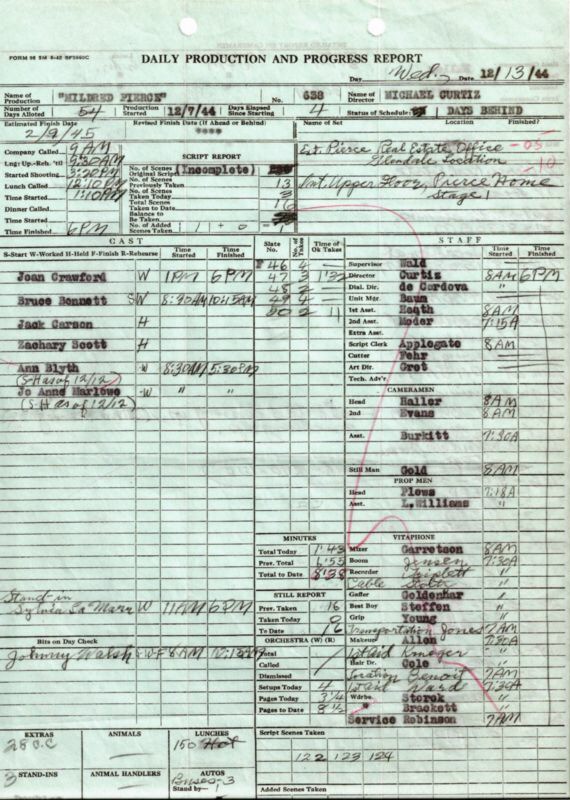 FORM 98 5M 8-42 SP3660C
DAILY PRODUCTION AND PROGRESS REPORT
Day Wed. Date 12/13/44
Name of Production "MILDRED PIERCE" No. 638 Name of Director MICHAEL CURTIZ
Number of Days Alloted 54 Production Started 12/7/44 Days Elapsed Since Starting 4 Status of Schedule: DAYS BEHIND
Estimated Finish Date 2/9/45 Revised Finish Date (If Ahead or Behind) **** Name of Set Location Finished?
Company Called 9AM
Lng: Up.-Reh. 'til 9:30AM
Started Shooting
Lunch Called 12:10PM
Time Started 1:10PM
Dinner Called
Time Started
Time Finished 6PM
SCRIPT REPORT
No. of Scenes Original Script (Incomplete)
No. of Scenes Previously Taken 13
No. of Scenes Taken Today 3
Total Scenes Taken to Date 16
Balance to Be Taken
No. of Added Scenes Taken 1 + 0 = 1
Ext. Pierce Real Estate Office
Glendale Location
Int. Upper Floor, Pierce Home
Stage 1
CAST
S-Start W-Worked H-Held F-Finish R-Rehearse Time Started Time Finished
Joan Crawford W 1PM 6PM
Bruce Bennett SW 8:30AM 10:15AM
Jack Carson H
Zachary Scott H
Ann Blyth W 8:30AM 5:30PM
(S-H as of 12/12)
Jo Anne Marlowe W " "
(S-H as of 12/12)
Stand-in
Sylvia La Marr W 11AM 6PM
Bits on Day Check
Johnny Walsh
Slate No. No. of Takes Time of Ok Takes
46 4
47 3 1'32
48 2
49 4 —
50 2 11
MINUTES
Total Today 1'43
Prev. Total 6'55
Total to Date 8'38
STILL REPORT
Prev. Taken 16
Taken Today
To Date
ORCHESTRA (W) (R)
Total
Called
Dismissed
Setups Today 4
Pages Today 3 1/4
Pages to Date 8 1/2
STAFF
Time Started Time Finished
Supervisor Wald
Director Curtiz 8AM 6PM
Dial. Dir. de Cordova "
Unit Mgr. Baum
1st Asst. Heath 8AM
2nd Asst. Moder 7:15A
Extra Asst.
Script Clerk Applegate 8AM
Cutter Fehr
Art Dir. Grot
Tech. Adv'r
CAMERAMEN
Head Haller 8AM
2nd Evans 8AM
Asst. Burkitt 7:30A
Still Man Gold 8AM
PROP MEN
Head Plews 7:18A
Asst. L. Williams "
VITAPHONE
Mixer Garretson 8AM
Boom Jensen 7:30A
Recorder Triplett "
Cable "
Gaffer Goldenhar "
Best Boy Steffen "
Grip Young "
Transportation Jones 7AM
Makeup Allen 7:30A
1st aid Krueger "
Hair Dr. Cole "
Location Benoit 7AM
1st aid Ward 7:30A
Wdrbe. Storek "
" Brackett "
Service Robinson 7AM
EXTRAS ANIMALS LUNCHES
150 Hot
STAND-INS ANIMAL HANDLERS AUTOS
3 Buses-3
Stand by-1
Script Scenes Taken
122 123 124
Added Scenes Taken